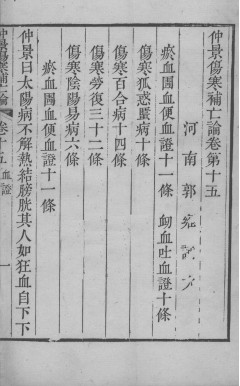 仲景傷寒補亡論卷第十五
河南郭雍
瘀血圊血便血證十一條　衂血吐血證十條
傷寒狐惑䘌病十條
傷寒百合病十四條
傷寒勞復三十二條
傷寒陰陽易病六條
瘀血圊血便血證十一條
仲景曰太陽病不解熱結膀胱其人如狂血自下下
卷十五血證
一